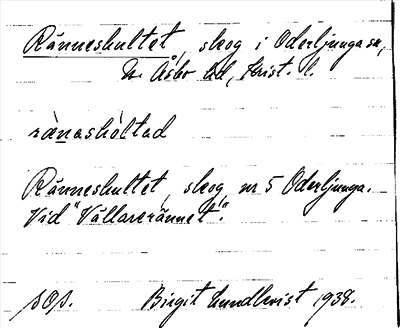 Ränneshultet, skog i Oderljunga sn,
N. Åsbo hd, Krist. l.
rä̀nashàltad
Ränneshultet skog nr 5 Oderljunga.
Vid "Vällarerännet".
sOs. Birgit Lundkvist 1938.